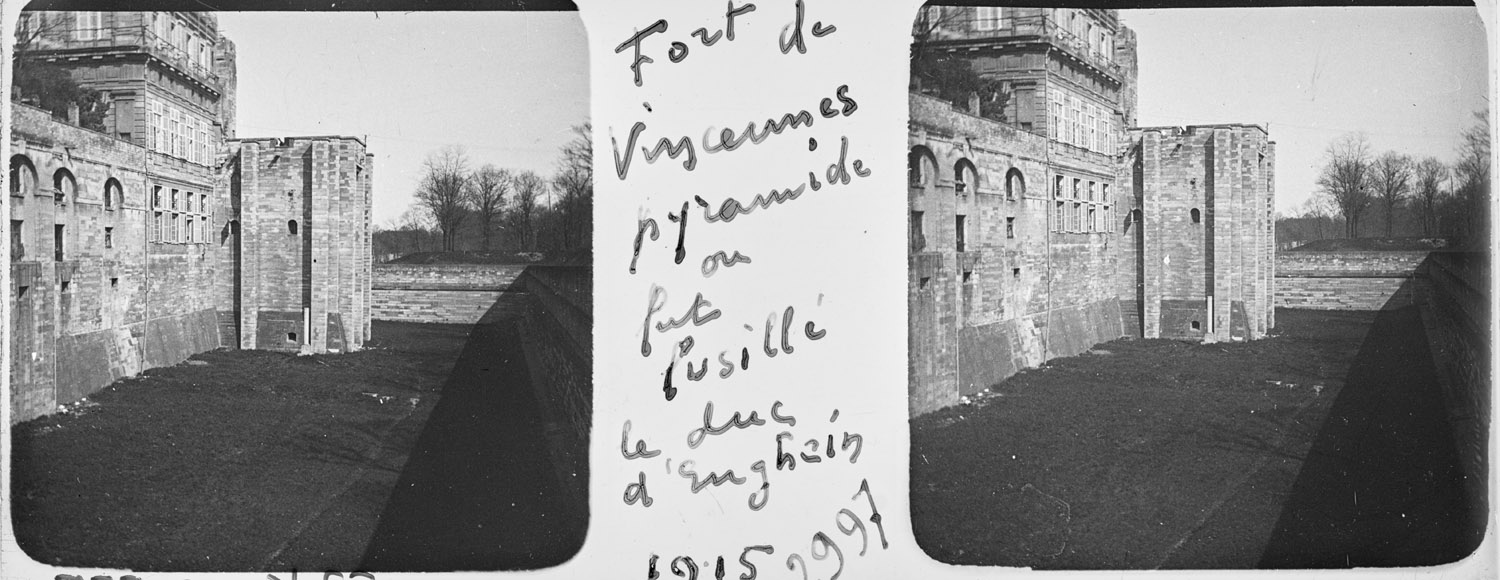 Fort de
Vincennes
pyramide
ou
fut
fusillé
le duc
d'Enghein
1915 2997